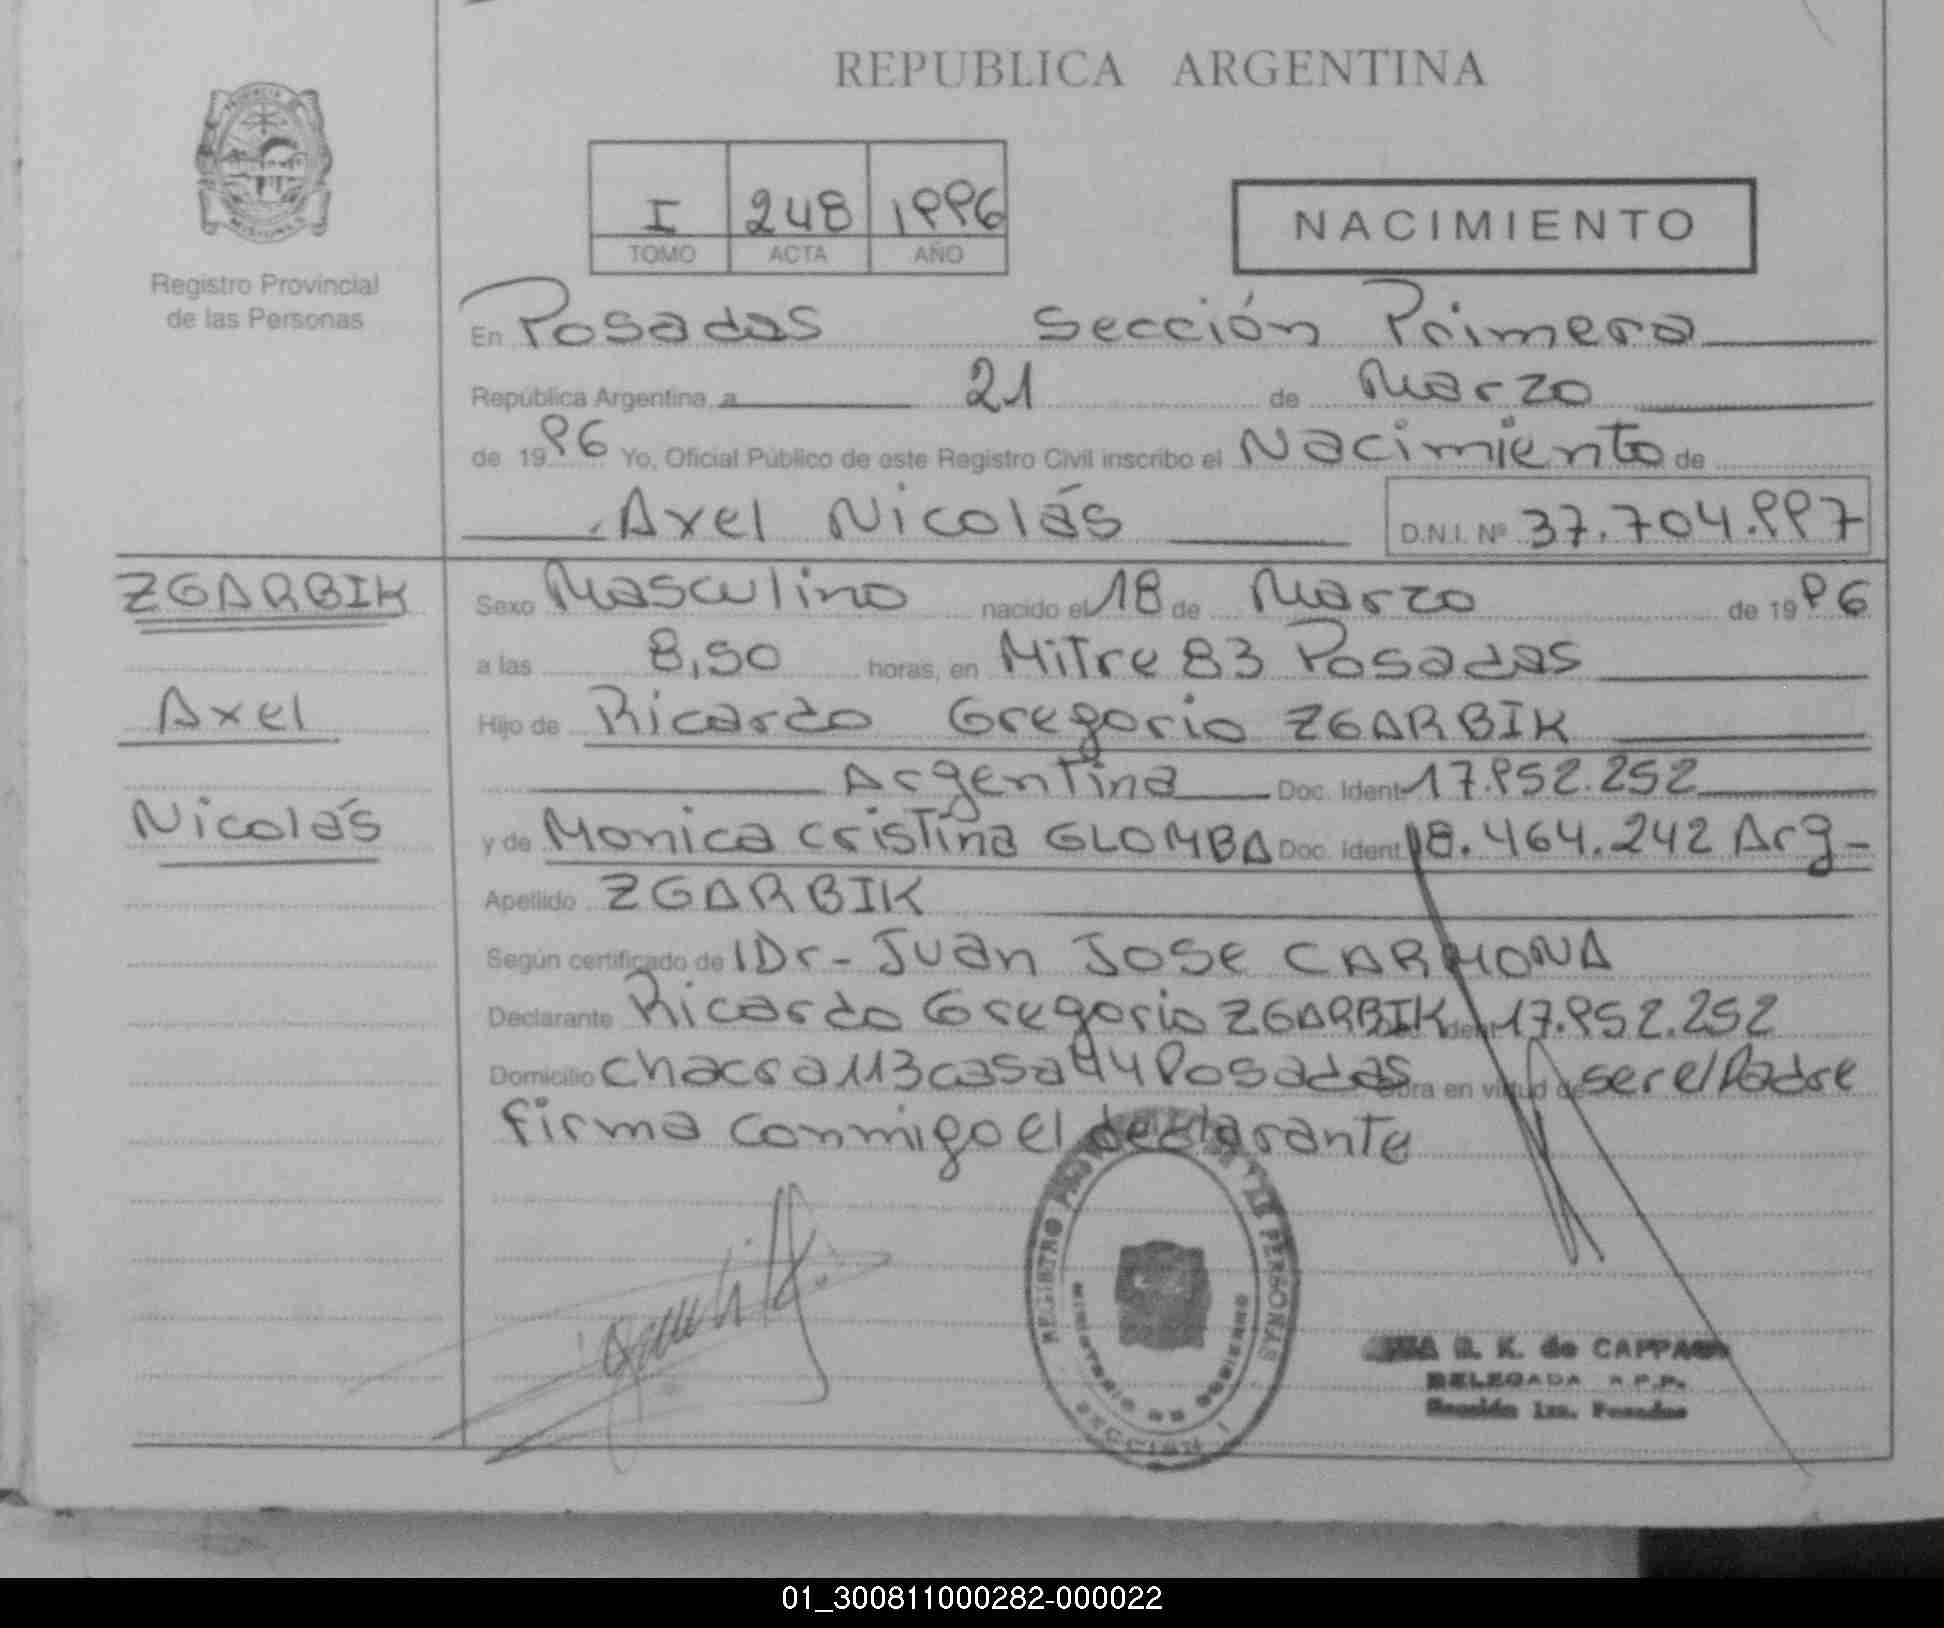 REPUBLICA ARGENTINA
PROVINCIA DE
MISIONES
Registro Provincial
de las Personas
I 248 1996
TOMO ACTA AÑO
NACIMIENTO
En Posadas Sección Primera
República Argentina, a 21 de Marzo
de 1996 Yo, Oficial Público de este Registro Civil inscribo el Nacimiento de
Axel Nicolás D.N.I. Nº 37.704.997
ZGARBIK
Axel
Nicolás
Sexo Masculino nacido el 18 de Marzo de 1996
a las 8,50 horas, en Mitre 83 Posadas
Hijo de Ricardo Gregorio ZGARBIK
Argentina Doc. Ident 17.952.252
y de Monica Cristina GLOMBA Doc. Ident 18.464.242 Arg-
Apellido ZGARBIK
Según certificado de Dr- Juan Jose CARMONA
Declarante Ricardo Gregorio ZGARBIK Doc. Ident 17.952.252
Domicilio chacra 113 casa 44 Posadas Obra en virtud de ser el Padre
firma conmigo el declarante
REGISTRO PROVINCIAL DE LAS PERSONAS
MINISTERIO DE GOBIERNO
SECCION 1
K. de CAPPA
DELEGADA R.P.P.
Sección 1ra. Posadas
01_300811000282-000022